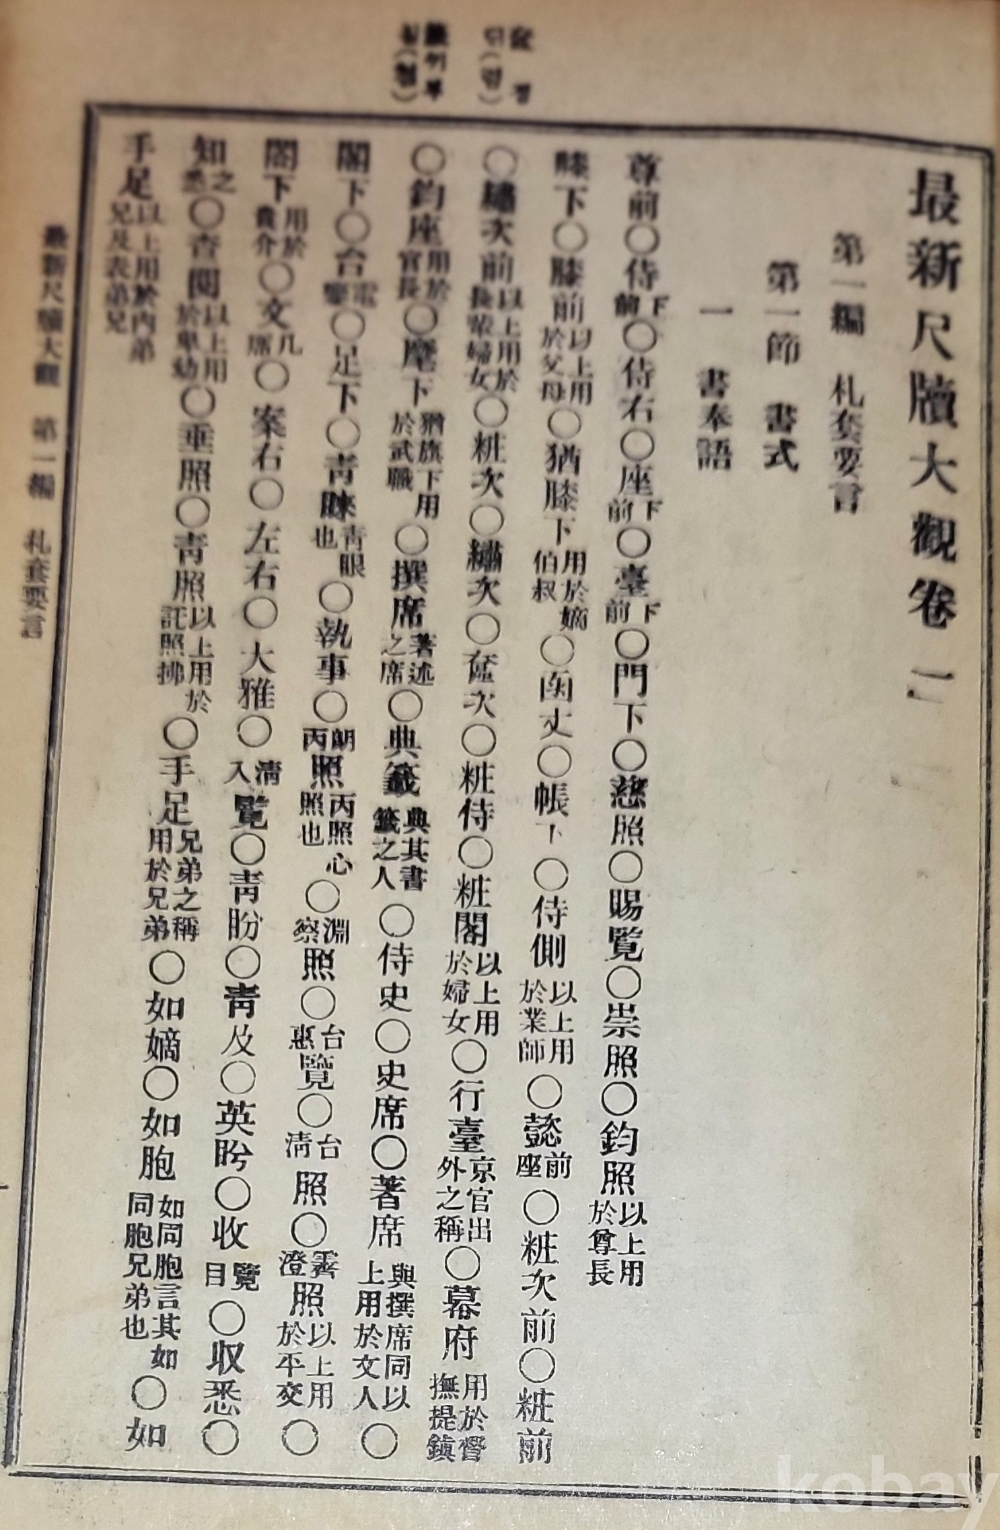 最新尺牘大觀卷一
第一編 札套要言
第一節 書式
一 書奉語
尊前〇侍下前〇侍右〇座下前〇臺下前〇門下〇慈照〇賜覽〇崇照〇鈞照以上用於尊長
膝下〇膝前以上用於父母〇猶膝下用於嫡伯叔〇函丈〇帳下〇侍側以上用於業師〇懿前座〇粧次前〇粧前
〇繡次前以上用於長輩婦女〇粧次〇繡次〇奩次〇粧侍〇粧閣以上用於婦女〇行臺京官出外之稱〇幕府用於督撫提鎭
〇鈞座用於官長〇麾下猶旗下用於武職〇撰席著述之席〇典籤典其書籤之人〇侍史〇史席〇著席與撰席同以上用於文人〇
閣下〇台電鑒〇足下〇靑睞靑眼也〇執事〇朗丙照丙照心照也〇淵察照〇台惠覽〇台淸照〇霽澄照以上用於平交〇
閣下用於貴介〇文几席〇案右〇左右〇大雅〇淸入覽〇靑盼〇靑及〇英盻〇收覽目〇収悉〇
知之悉〇查閱以上用於卑幼〇垂照〇靑照以上用於託照拂〇手足兄弟之稱用於兄弟〇如嫡〇如胞如同胞言其如同胞兄弟也〇如
手足以上用於內弟兄及表弟兄
最新尺牘大觀 第一編 札套要言
kobay